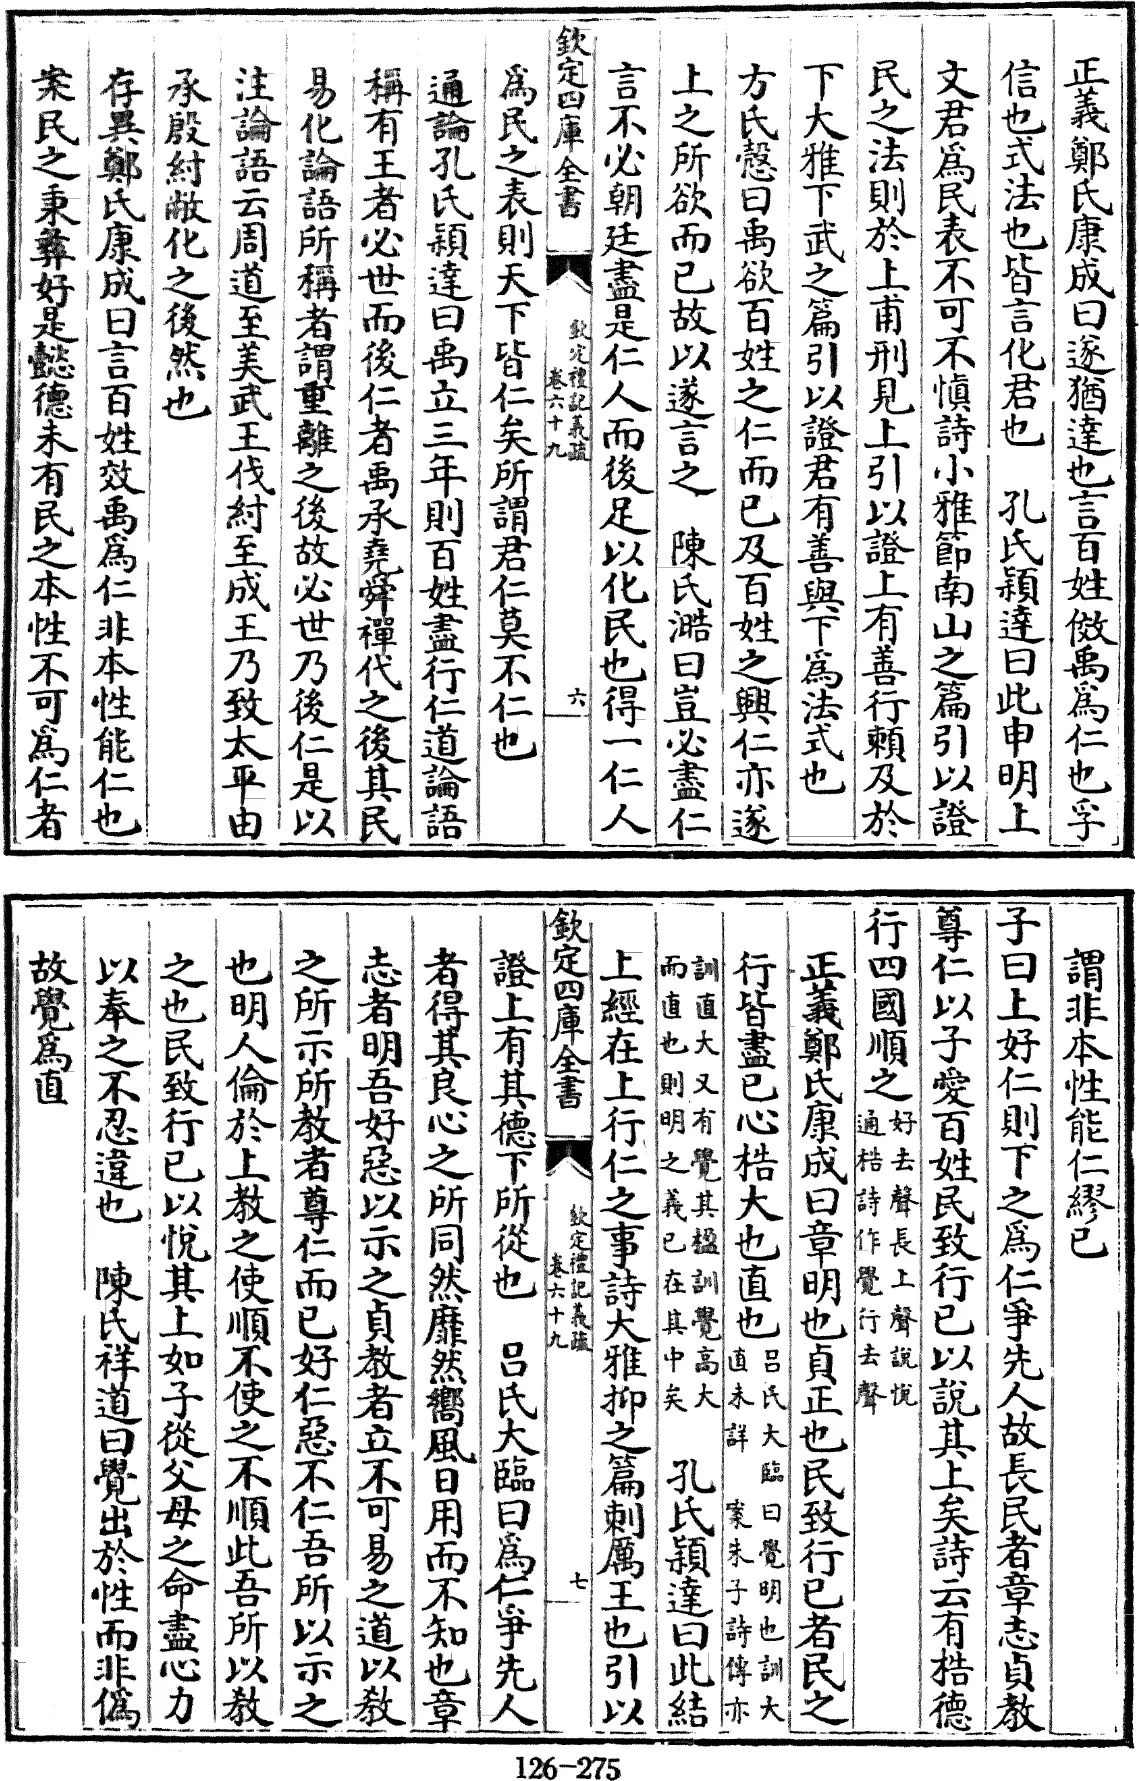 正義鄭氏康成曰遂猶達也言百姓傚禹為仁也孚
信也式法也皆言化君也　孔氏穎達曰此申明上
文君為民表不可不慎詩小雅節南山之篇引以證
民之法則於上甫刑見上引以證上有善行賴及於
下大雅下武之篇引以證君有善與下為法式也
方氏慤曰禹欲百姓之仁而已及百姓之興仁亦遂
上之所欲而已故以遂言之　陳氏澔曰豈必盡仁
言不必朝廷盡是仁人而後足以化民也得一仁人
欽定四庫全書
欽定禮記義疏
卷六十九
六
為民之表則天下皆仁矣所謂君仁莫不仁也
通論孔氏穎達曰禹立三年則百姓盡行仁道論語
稱有王者必世而後仁者禹承堯舜禪代之後其民
易化論語所稱者謂重離之後故必世乃後仁是以
注論語云周道至美武王伐紂至成王乃致太平由
承殷紂敝化之後然也
存異鄭氏康成曰言百姓效禹為仁非本性能仁也
案民之秉彝好是懿德未有民之本性不可為仁者
謂非本性能仁繆已
子曰上好仁則下之為仁爭先人故長民者章志貞教
尊仁以子愛百姓民致行已以說其上矣詩云有梏德
行四國順之
好去聲長上聲說悅
通梏詩作覺行去聲
正義鄭氏康成曰章明也貞正也民致行已者民之
行皆盡已心梏大也直也
呂氏大臨曰覺明也訓大
直未詳　案朱子詩傳亦
訓直大又有覺其楹訓覺高大
而直也則明之義已在其中矣
孔氏穎達曰此結
上經在上行仁之事詩大雅抑之篇刺厲王也引以
欽定四庫全書
欽定禮記義疏
卷六十九
七
證上有其德下所從也　呂氏大臨曰為仁爭先人
者得其良心之所同然靡然嚮風日用而不知也章
志者明吾好惡以示之貞教者立不可易之道以教
之所示所教者尊仁而已好仁惡不仁吾所以示之
也明人倫於上教之使順不使之不順此吾所以教
之也民致行已以悅其上如子從父母之命盡心力
以奉之不忍違也　陳氏祥道曰覺出於性而非偽
故覺為直
126-275